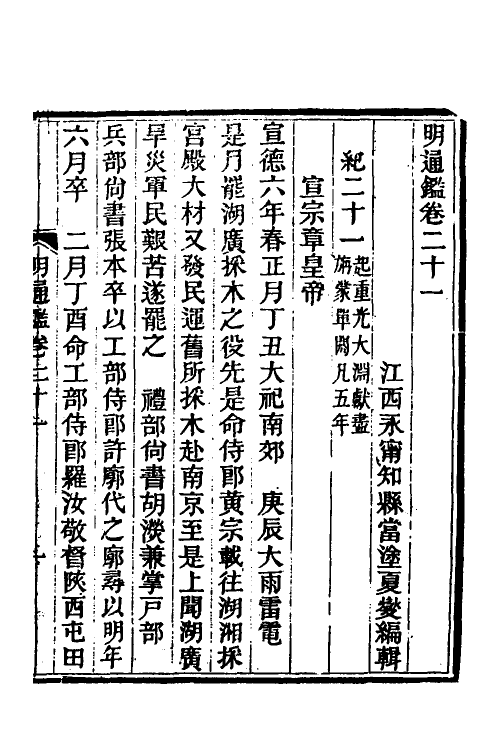 明通鑑卷二十一
江西永甯知縣當塗夏燮編輯
紀二十一起重光大淵獻盡
旃蒙單閼凡五年
宣宗章皇帝
宣德六年春正月丁丑大祀南郊　庚辰大雨雷電
是月罷湖廣採木之役先是命侍郎黃宗載往湖湘採
宮殿大材又發民運舊所採木赴南京至是上聞湖廣
旱災軍民艱苦遂罷之　禮部尚書胡濙兼掌戸部
兵部尚書張本卒以工部侍郎許廓代之廓尋以明年
六月卒　二月丁酉命工部侍郎羅汝敬督陝西屯田
明通鑑卷二十一
一